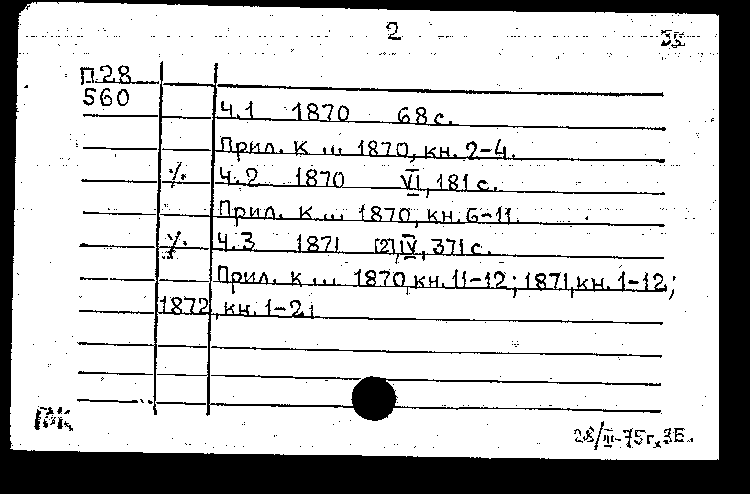 2
П.28
560
ч.1 1870 68 с.
Прил. к ... 1870, кн. 2-4.
ч.2 1870 VI, 181 с.
Прил. к ... 1870, кн. 6-11.
ч.3 1871 [2], IV, 371 с.
Прил. к ... 1870, кн. 11-12; 1871, кн. 1-12;
1872, кн. 1-2;
28/III-75г.